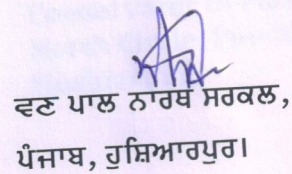 ਵਣ ਪਾਲ ਨਾਰਥ ਸਰਕਲ,
ਪੰਜਾਬ, ਹੁਸ਼ਿਆਰਪੁਰ।